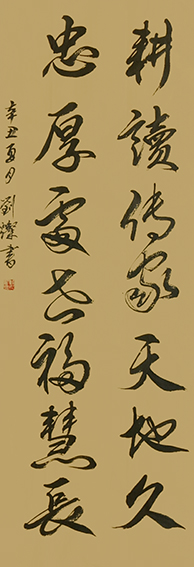 耕讀传家天地久
忠厚處世福慧長
辛丑夏月劉燦書